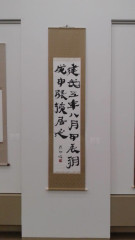 建武五年八月甲辰朔
戊申張掖居延